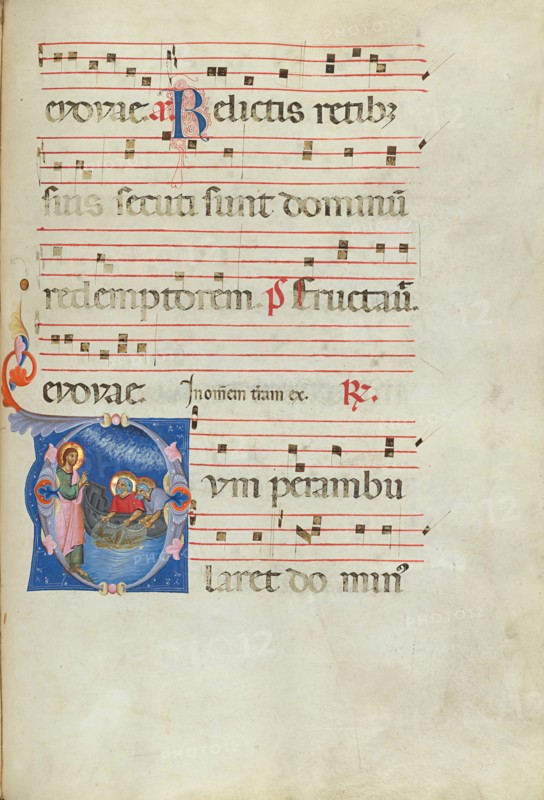 evovae. añ Relictis retibꝫ
suis secuti sunt dominū
redemptorem. ps Eructaū.
evovae. In omēm t̄ram ex. R̸.
vm perambu
laret do minꝰ
PHOTO12